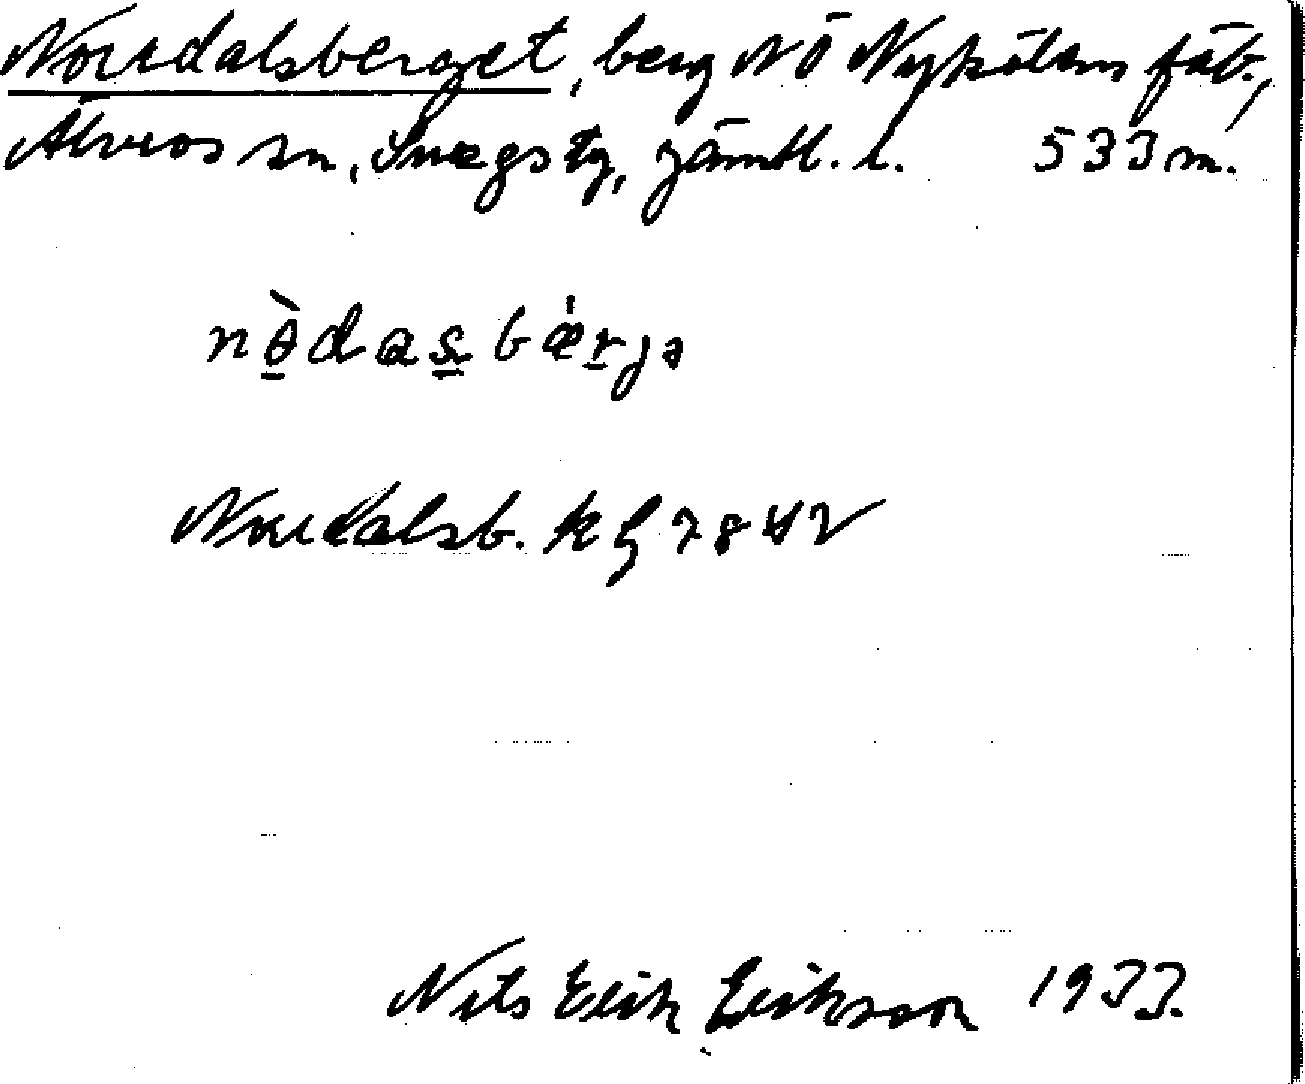 Norrdalsberget, berg NÖ Nykölens fäb.,
Älvros sn, Svegs tg, Jämtl. l. 533 m.
nə̠̀das̠bǽr̠jə
Norrdalsb. kg 7842
Nils Erik Erikson 1933.